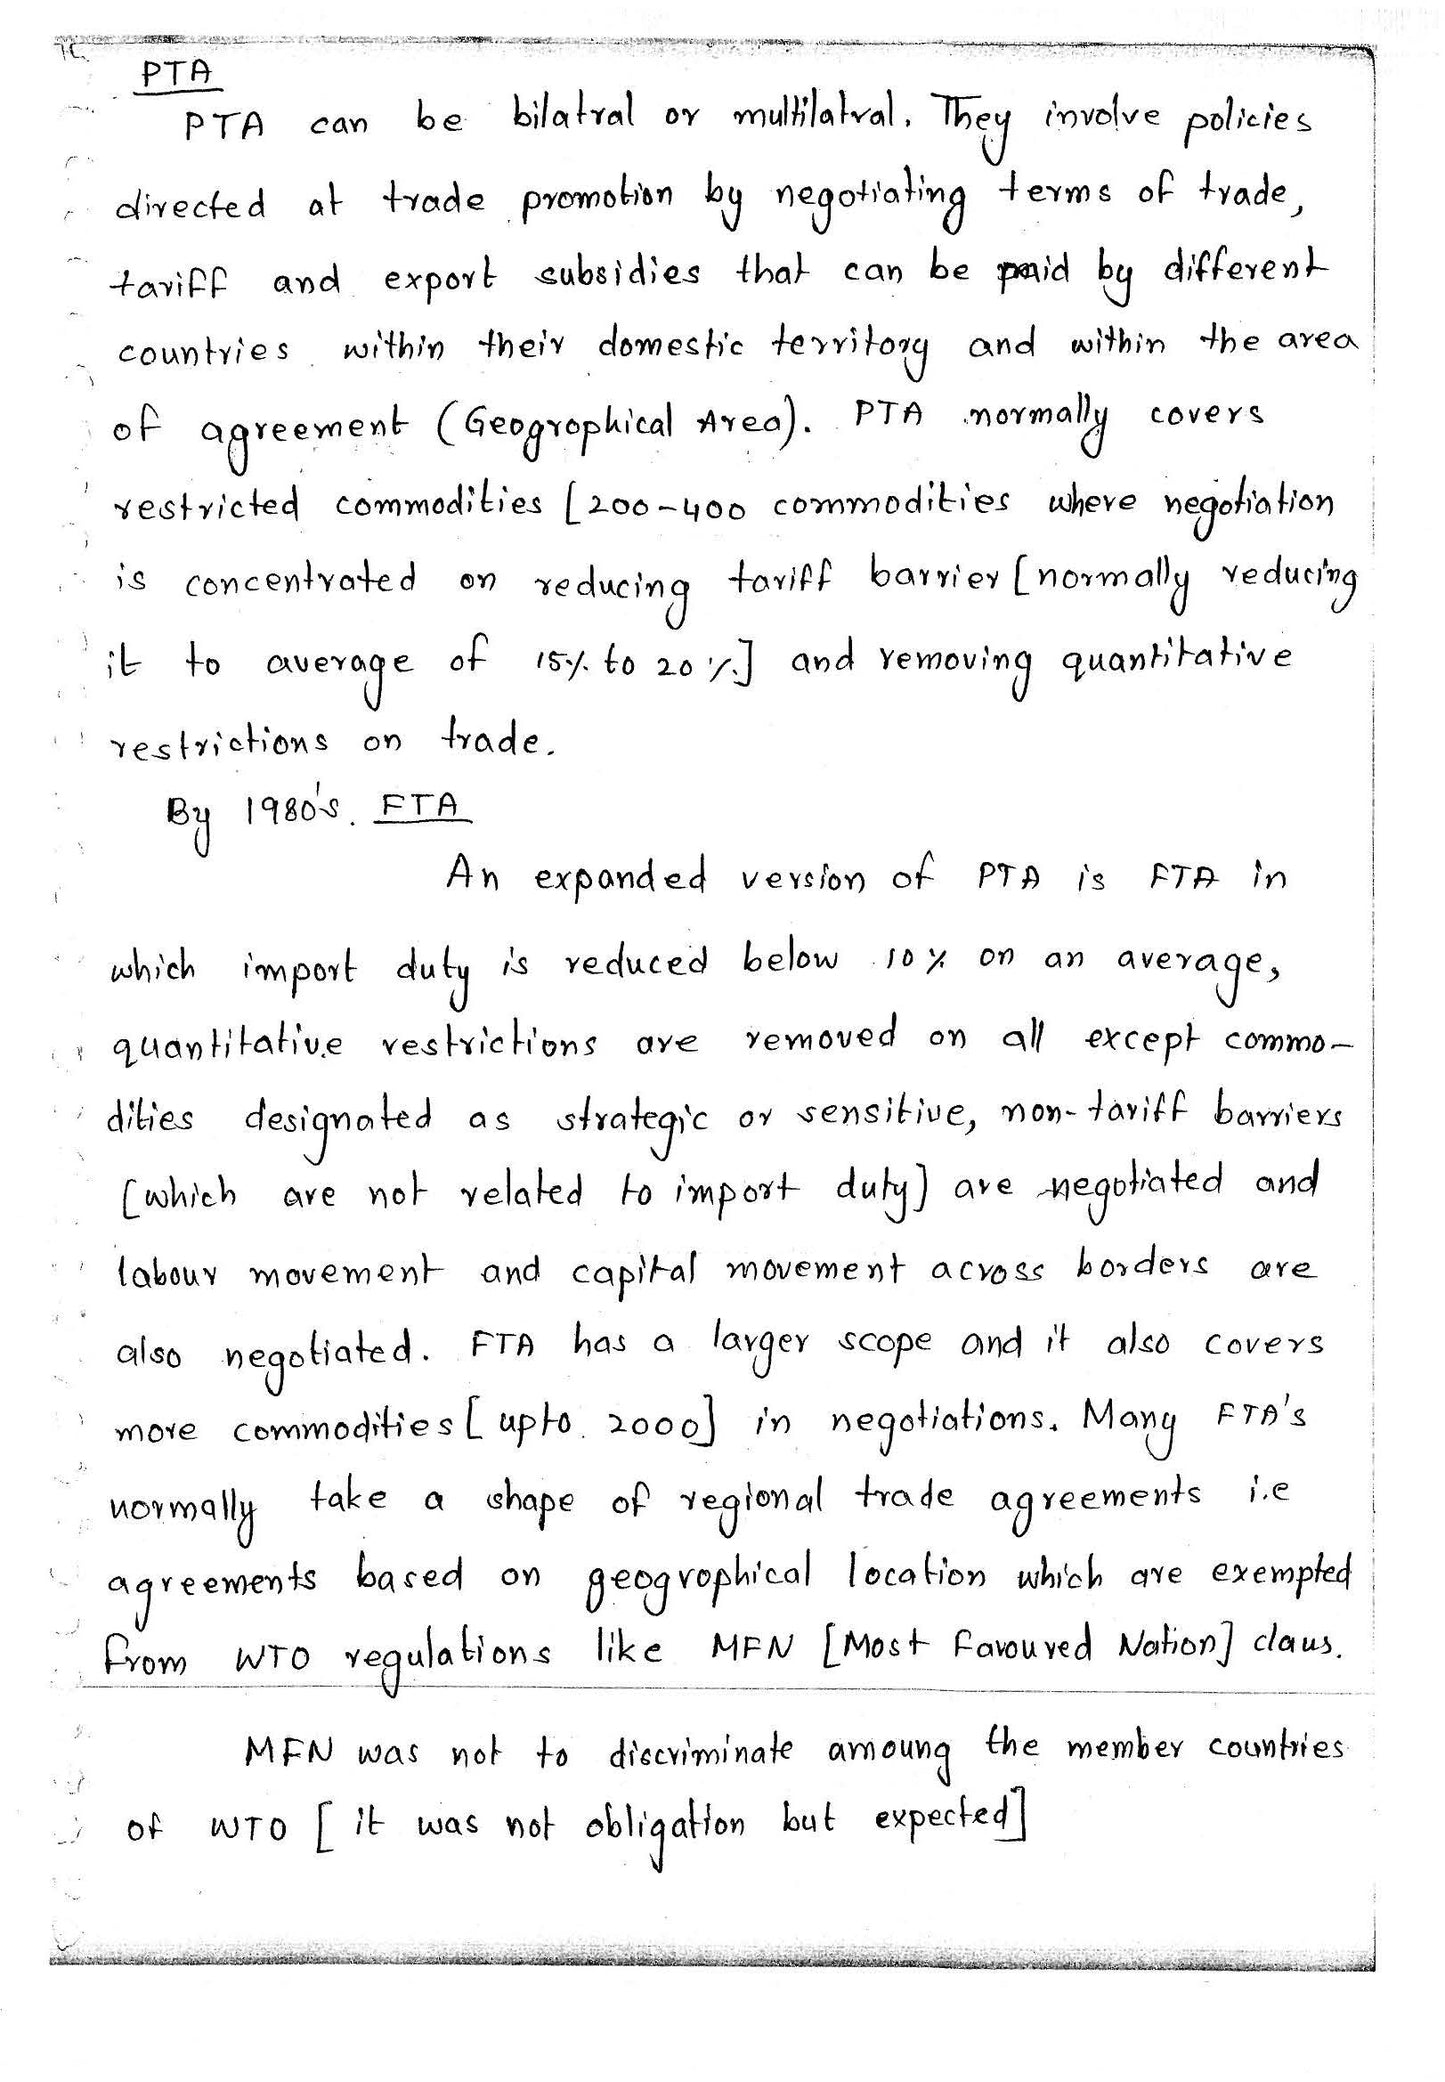 PTA
PTA can be bilatral or multilatral. They involve policies
directed at trade promotion by negotiating terms of trade,
tariff and export subsidies that can be paid by different
countries within their domestic territory and within the area
of agreement (Geographical Area). PTA normally covers
restricted commodities [200-400 commodities where negotiation
is concentrated on reducing tariff barrier [normally reducing
it to average of 15% to 20%] and removing quantitative
restrictions on trade.
By 1980's. FTA
An expanded version of PTA is FTA in
which import duty is reduced below 10% on an average,
quantitative restrictions are removed on all except commo-
dities designated as strategic or sensitive, non-tariff barriers
[which are not related to import duty] are negotiated and
labour movement and capital movement across borders are
also negotiated. FTA has a larger scope and it also covers
more commodities [upto 2000] in negotiations. Many FTA's
normally take a shape of regional trade agreements i.e
agreements based on geographical location which are exempted
from WTO regulations like MFN [Most Favoured Nation] claus.
MFN was not to discriminate amoung the member countries
of WTO [it was not obligation but expected]